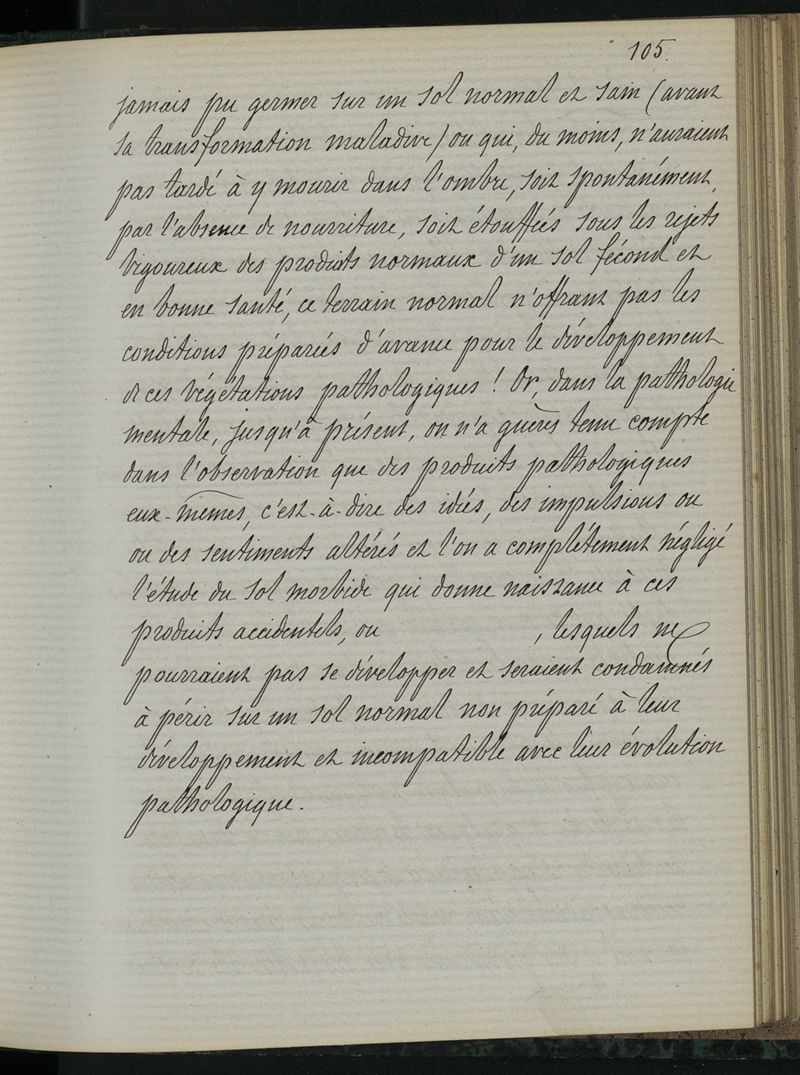 105.
jamais pu germer sur un sol normal et sain (avant
sa transformation maladive) ou qui, du moins, n'auraient
pas tardé à y mourir dans l'ombre, soit spontanément,
par l'absence de nourriture, soit étouffés sous les rejets
vigoureux des produits normaux d'un sol fécond et
en bonne santé, ce terrain normal n'offrant pas les
conditions préparées d'avance pour le développement
de ces végétations pathologiques ! Or, dans la pathologie
mentale, jusqu'à présent, on n'a guères tenu compte
dans l'observation que des produits pathologiques
eux-mêmes, c'est-à-dire des idées, des impulsions ou
ou des sentiments altérés et l'on a complétement négligé
l'étude du sol morbide qui donne naissance à ces
produits accidentels, ou , lesquels ne
pourraient pas se développer et seraient condamnés
à périr sur un sol normal non préparé à leur
développement et incompatible avec leur évolution
pathologique.